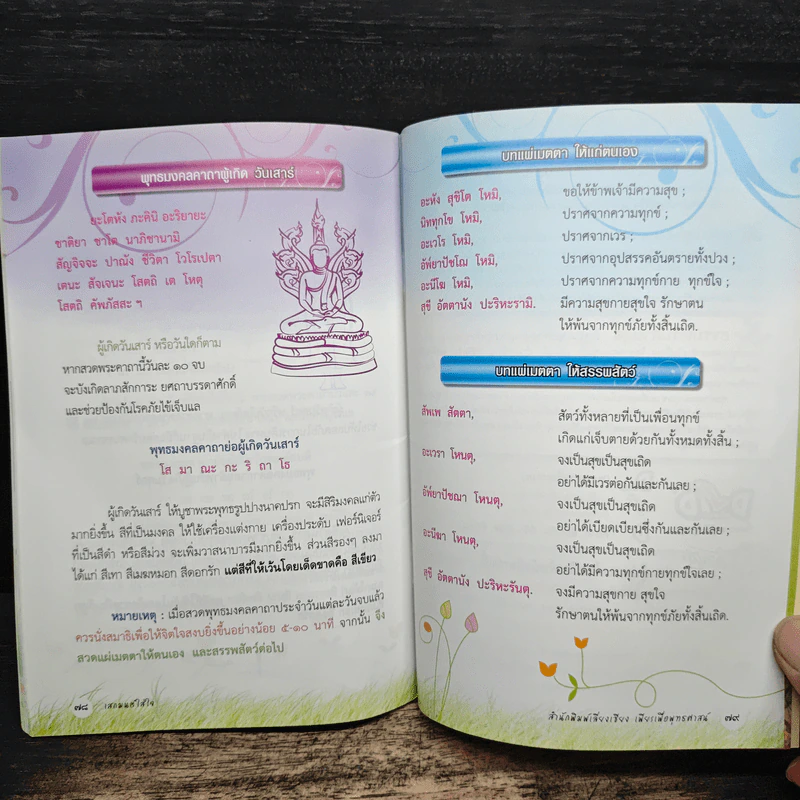 พุทธมงคลคาถาผู้เกิด วันเสาร์
ยะโตหัง ภะคินิ อะริยายะ
ชาติยา ชาโต นาภิชานามิ
สัญจิจจะ ปาณัง ชีวิตา โวโรเปตา
เตนะ สัจเจนะ โสตถิ เต โหตุ
โสตถิ คัพภัสสะ ฯ
ผู้เกิดวันเสาร์ หรือวันใดก็ตาม
หากสวดพระคาถานี้วันละ ๑๐ จบ
จะบังเกิดลาภสักการะ ยศถาบรรดาศักดิ์
และช่วยป้องกันโรคภัยไข้เจ็บแล
พุทธมงคลคาถาย่อผู้เกิดวันเสาร์
โส มา ณะ กะ ริ ถา โธ
ผู้เกิดวันเสาร์ ให้บูชาพระพุทธรูปปางนาคปรก จะมีสิริมงคลแก่ตัว
มากยิ่งขึ้น สีที่เป็นมงคล ให้ใช้เครื่องแต่งกาย เครื่องประดับ เฟอร์นิเจอร์
ที่เป็นสีดำ หรือสีม่วง จะเพิ่มวาสนาบารมีมากยิ่งขึ้น ส่วนสีรองๆ ลงมา
ได้แก่ สีเทา สีเมฆหมอก สีดอกรัก แต่สีที่ให้เว้นโดยเด็ดขาดคือ สีเขียว
หมายเหตุ : เมื่อสวดพุทธมงคลคาถาประจำวันแต่ละวันจบแล้ว
ควรนั่งสมาธิเพื่อให้จิตใจสงบยิ่งขึ้นอย่างน้อย ๕-๑๐ นาที จากนั้น จึง
สวดแผ่เมตตาให้ตนเอง และสรรพสัตว์ต่อไป
๗๘ เสกมนต์ใส่ใจ
บทแผ่เมตตา ให้แก่ตนเอง
อะหัง สุขิโต โหมิ, ขอให้ข้าพเจ้ามีความสุข ;
นิททุกโข โหมิ, ปราศจากความทุกข์ ;
อะเวโร โหมิ, ปราศจากเวร ;
อัพ๎ยาปัชโฌ โหมิ, ปราศจากอุปสรรคอันตรายทั้งปวง ;
อะนีโฆ โหมิ, ปราศจากความทุกข์กาย ทุกข์ใจ ;
สุขี อัตตานัง ปะริหะรามิ. มีความสุขกายสุขใจ รักษาตน
ให้พ้นจากทุกข์ภัยทั้งสิ้นเถิด.
บทแผ่เมตตา ให้สรรพสัตว์
สัพเพ สัตตา, สัตว์ทั้งหลายที่เป็นเพื่อนทุกข์
เกิดแก่เจ็บตายด้วยกันทั้งหมดทั้งสิ้น ;
อะเวรา โหนตุ, จงเป็นสุขเป็นสุขเถิด
อย่าได้มีเวรต่อกันและกันเลย ;
อัพ๎ยาปัชฌา โหนตุ, จงเป็นสุขเป็นสุขเถิด
อย่าได้เบียดเบียนซึ่งกันและกันเลย ;
อะนีฆา โหนตุ, จงเป็นสุขเป็นสุขเถิด
อย่าได้มีความทุกข์กายทุกข์ใจเลย ;
สุขี อัตตานัง ปะริหะรันตุ. จงมีความสุขกาย สุขใจ
รักษาตนให้พ้นจากทุกข์ภัยทั้งสิ้นเถิด.
สำนักพิมพ์เลี่ยงเชียง เพียรเพื่อพุทธศาสน์ ๗๙